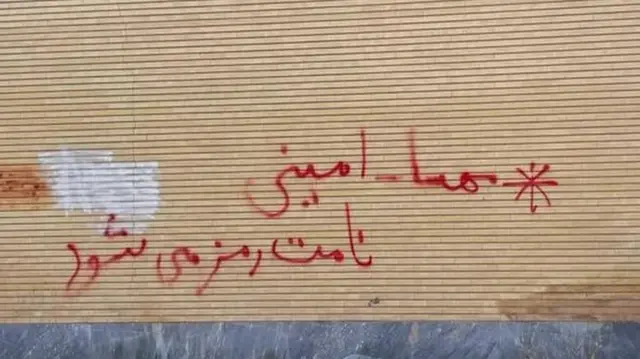 * مهسا - امینی
نامت رمز می شود